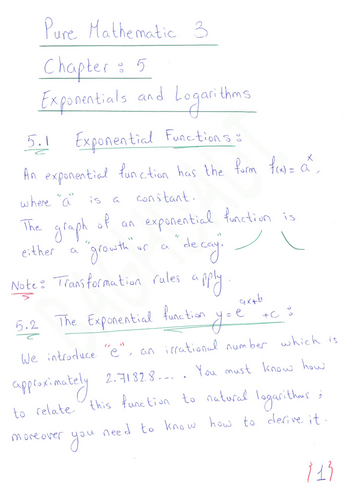 Pure Mathematic 3
Chapter : 5
Exponentials and Logarithms
5.1 Exponential Functions :
An exponential function has the form f(x) = a^x,
where "a" is a constant.
The graph of an exponential function is
either a "growth" or a "decay".
Note : Transformation rules apply.
5.2 The Exponential function y = e^{ax+b} + c :
We introduce "e", an irrational number which is
approximately 2.71828.... . You must know how
to relate this function to natural logarithms ;
moreover you need to know how to derive it.
{1}